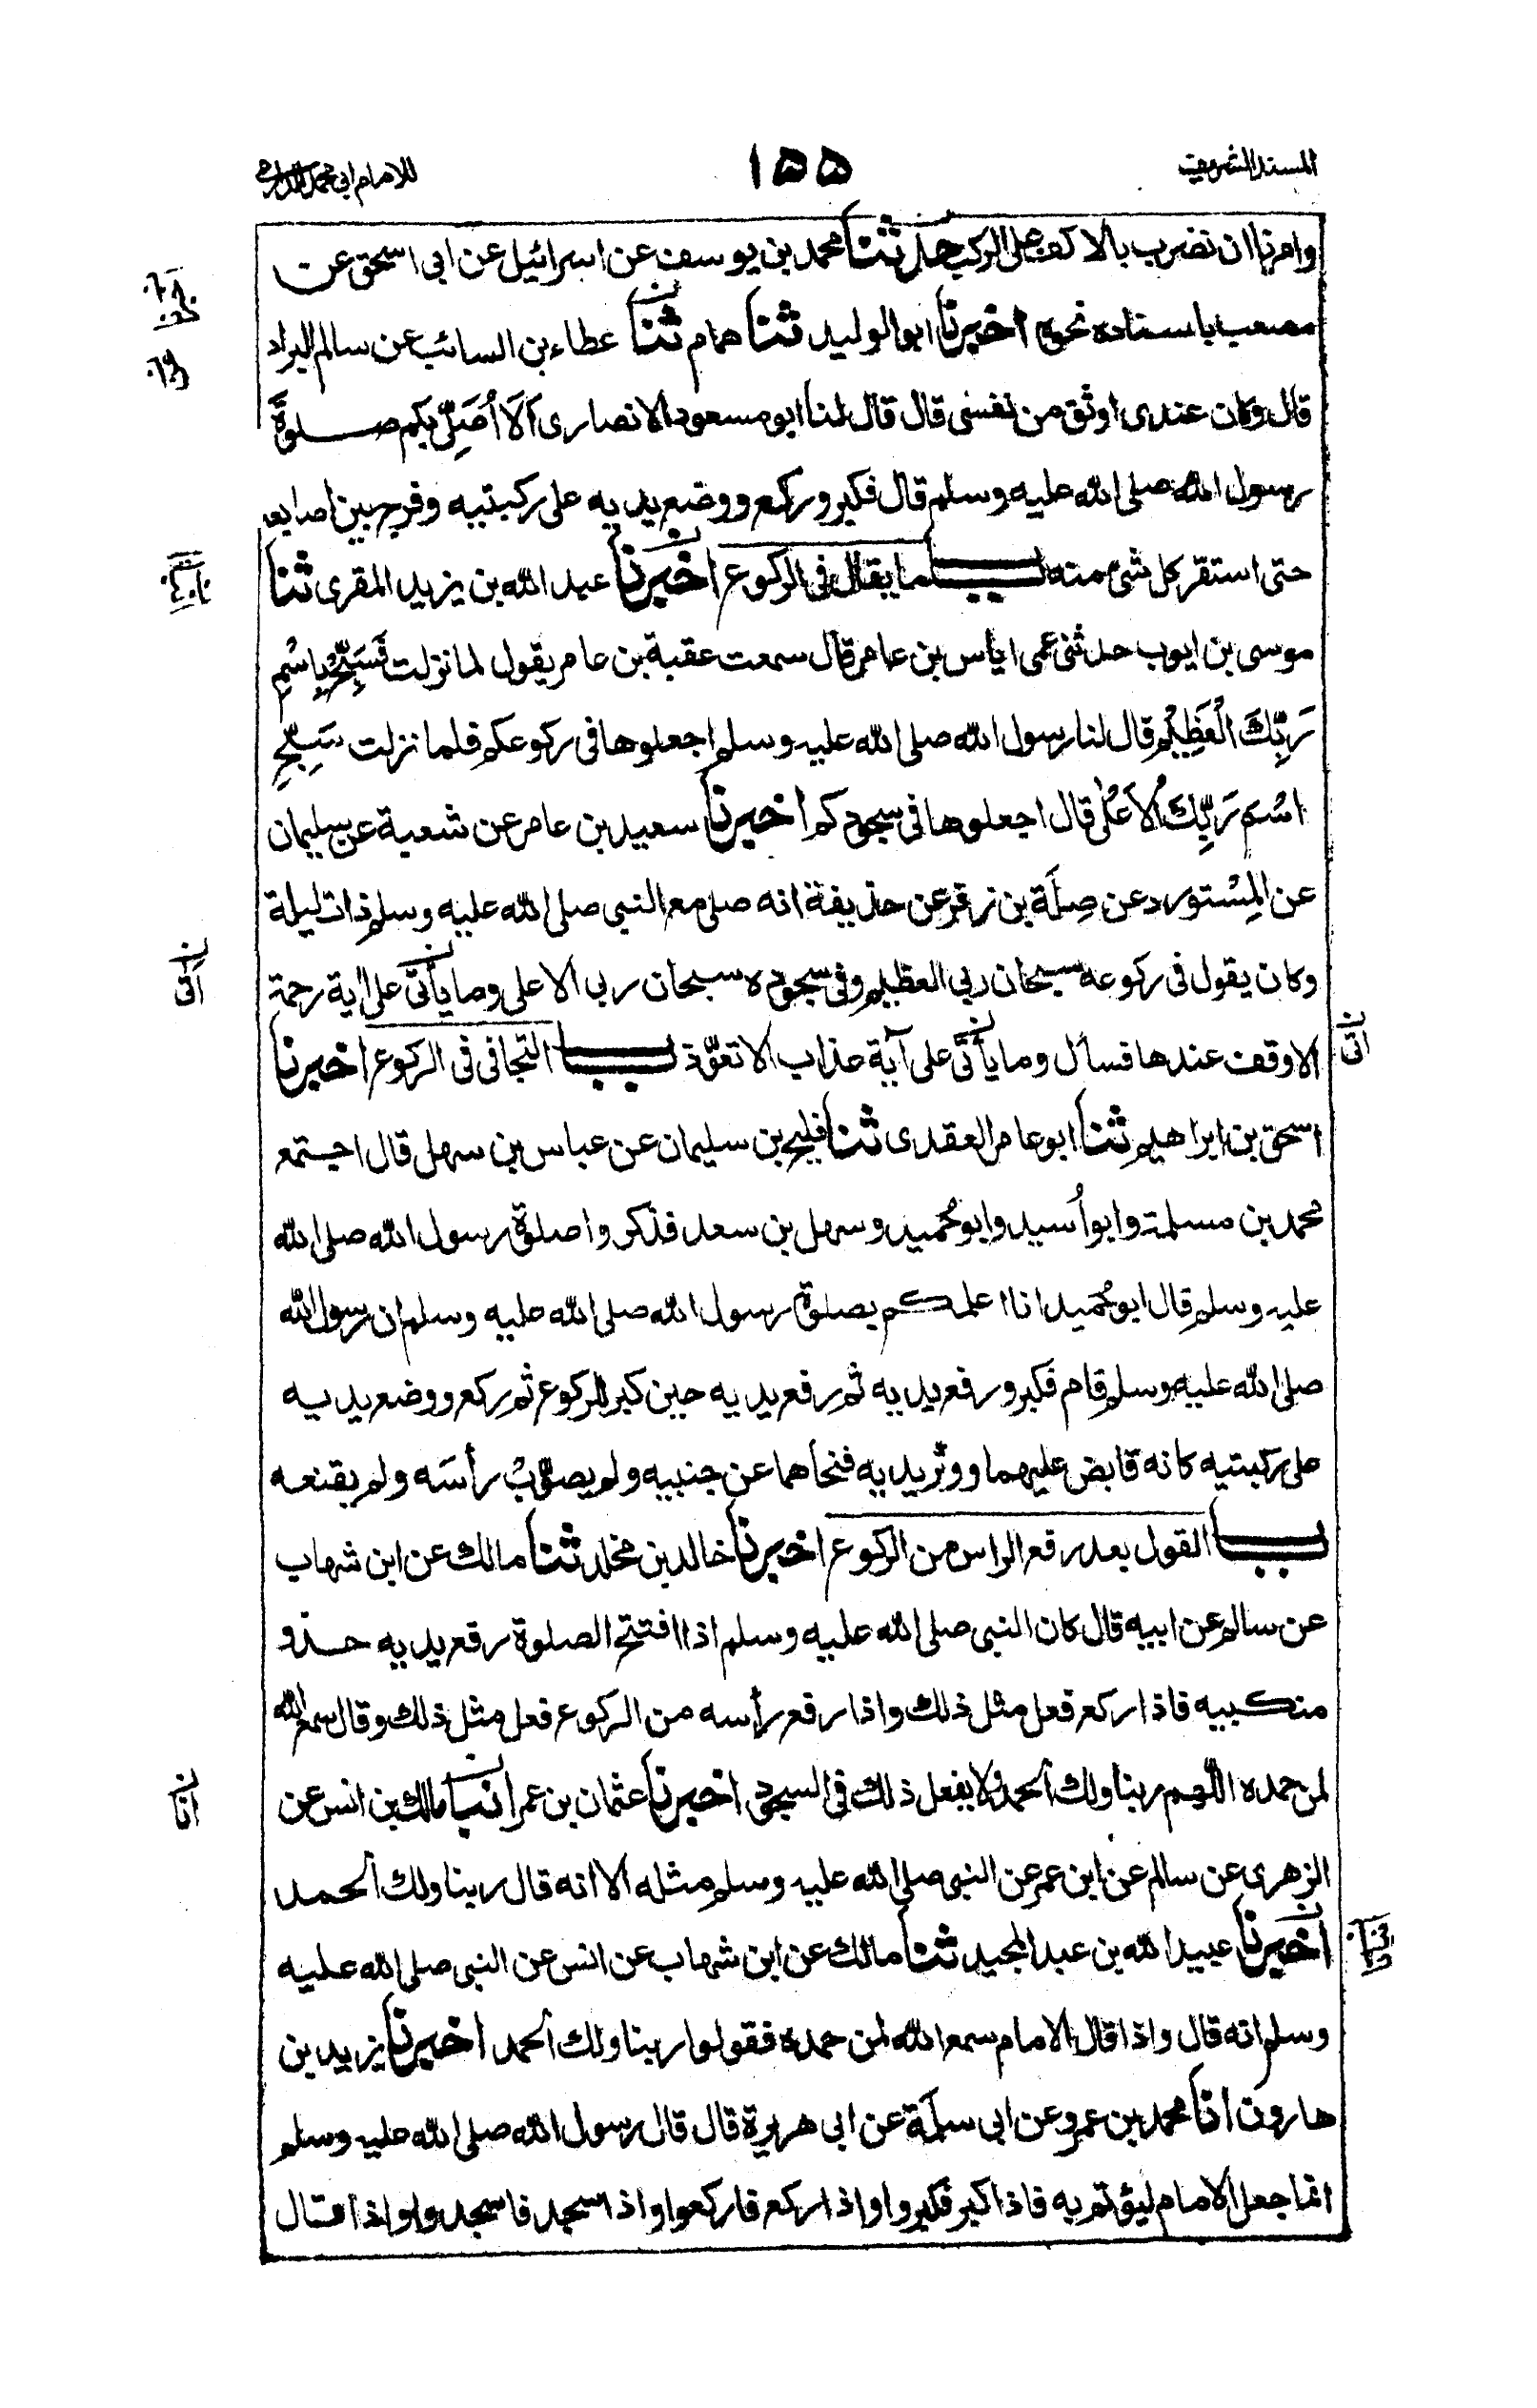 المسند الشريف
١٥٥
للامام ابي محمد الدارمي
وامرنا ان نضرب بالاكف على الركب حدثنا محمد بن يوسف عن اسرائيل عن ابي اسحق عن
مصعب باسناده نحوه اخبرنا ابو الوليد ثنا همام ثنا عطاء بن السائب عن سالم البراد
قال وكان عندى اوثق من نفسى قال قال لنا ابو مسعود الانصارى اَلَا اُصَلِّى بكم صلوةَ
رسول الله صلى الله عليه وسلم قال فكبر وركع ووضع يديه على ركبتيه وفرج بين اصابعه
حتى استقر كل شئ منه باب ما يقال فى الركوع اخبرنا عبد الله بن يزيد المقرى ثنا
موسى بن ايوب حدثنى عمى اياس بن عامر قال سمعت عقبة بن عامر يقول لما نزلت فَسَبِّحْ بِاسْمِ
رَبِّكَ الْعَظِيْمِ قال لنا رسول الله صلى الله عليه وسلم اجعلوها فى ركوعكم فلما نزلت سَبِّحِ
اسْمَ رَبِّكَ الْاَعْلٰى قال اجعلوها فى سجودكم اخبرنا سعيد بن عامر عن شعبة عن سليمان
عن المِسْتورد عن صِلَة بن زفر عن حذيفة انه صلى مع النبى صلى الله عليه وسلم ذات ليلة
وكان يقول فى ركوعه سبحان ربي العظيم وفى سجوده سبحان ربى الاعلى وما يأتى على اية رحمة
الا وقف عندها فسأل وما يأتى على آية عذاب الا تعوّذ باب التجافى فى الركوع اخبرنا
اسحق بن ابراهيم ثنا ابو عامر العقدى ثنا فليح بن سليمان عن عباس بن سهل قال اجتمع
محمد بن مسلمة وابو اُسيد وابو حُميد وسهل بن سعد فذكروا صلوة رسول الله صلى الله
عليه وسلم قال ابو حُميد انا اعلمكم بصلوة رسول الله صلى الله عليه وسلم ان رسول الله
صلى الله عليه وسلم قام فكبر ورفع يديه ثم رفع يديه حين كبر للركوع ثم ركع ووضع يديه
على ركبتيه كانه قابض عليهما ووتّر يديه فنحاهما عن جنبيه ولم يصوّبْ رأسَه ولم يقنعه
باب القول بعد رفع الراس من الركوع اخبرنا خالد بن مخلد ثنا مالك عن ابن شهاب
عن سالم عن ابيه قال كان النبى صلى الله عليه وسلم اذا افتتح الصلوة رفع يديه حذو
منكبيه فاذا ركع فعل مثل ذلك واذا رفع رأسه من الركوع فعل مثل ذلك وقال سمع الله
لمن حمده اللّهم ربنا ولك الحمد ولا يفعل ذلك فى السجود اخبرنا عثمان بن عمر انبا مالك بن انس عن
الزهرى عن سالم عن ابن عمر عن النبى صلى الله عليه وسلم مثله الا انه قال ربنا ولك الحمد
اخبرنا عبيد الله بن عبد المجيد ثنا مالك عن ابن شهاب عن انس عن النبى صلى الله عليه
وسلم انه قال واذا قال الامام سمع الله لمن حمده فقولوا ربنا ولك الحمد اخبرنا يزيد بن
هارون انا محمد بن عمرو عن ابى سلَمة عن ابى هريرة قال قال رسول الله صلى الله عليه وسلم
انما جعل الامام ليؤتم به فاذا كبر فكبروا واذا ركع فاركعوا واذا سجد فاسجدوا واذا قال
اتى
اتى
انا